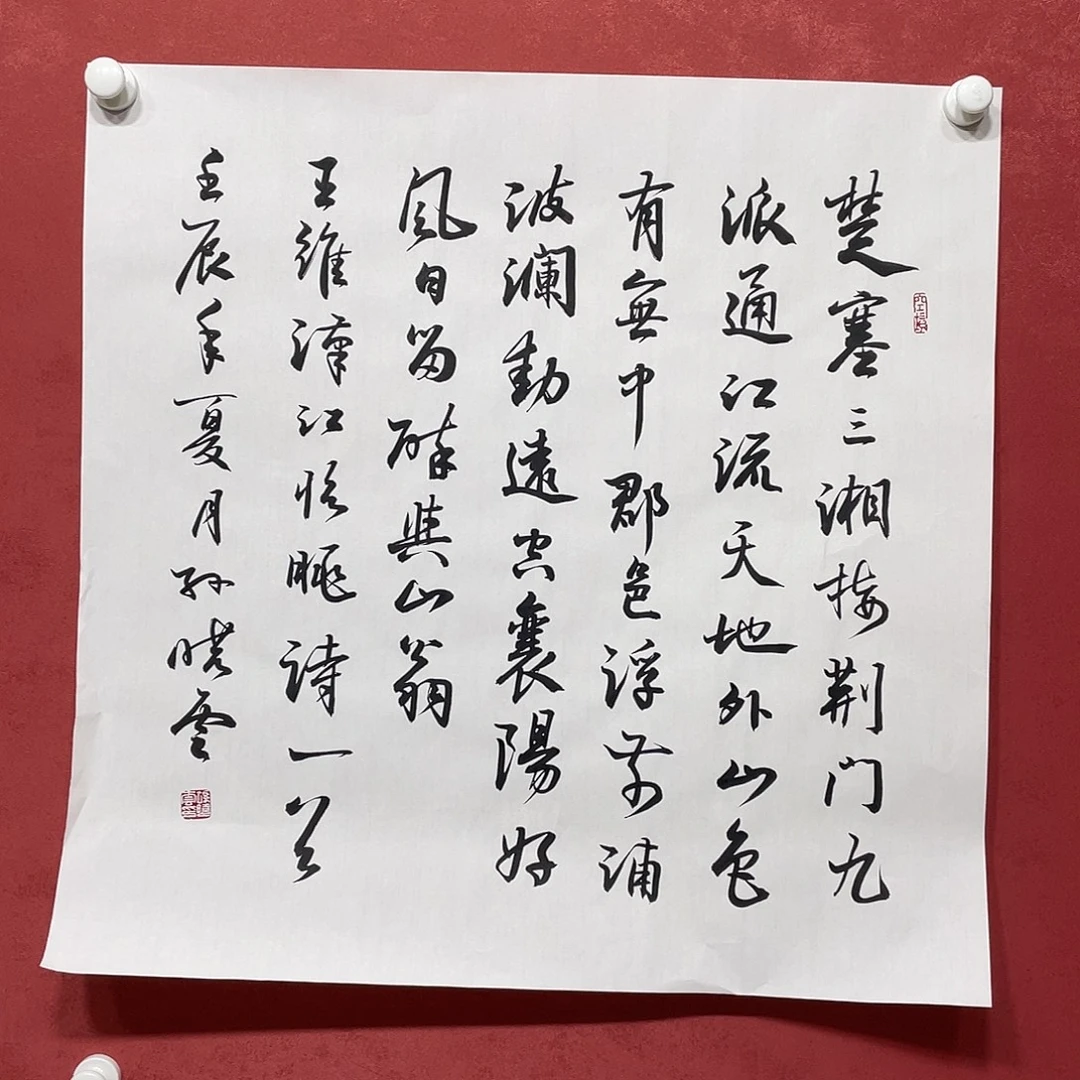 楚塞三湘接荆门九
派通江流天地外山色
有無中郡邑浮前浦
波瀾動遠空襄陽好
風日留醉與山翁
王維漢江临眺詩一首
壬辰年夏月孙晓雲